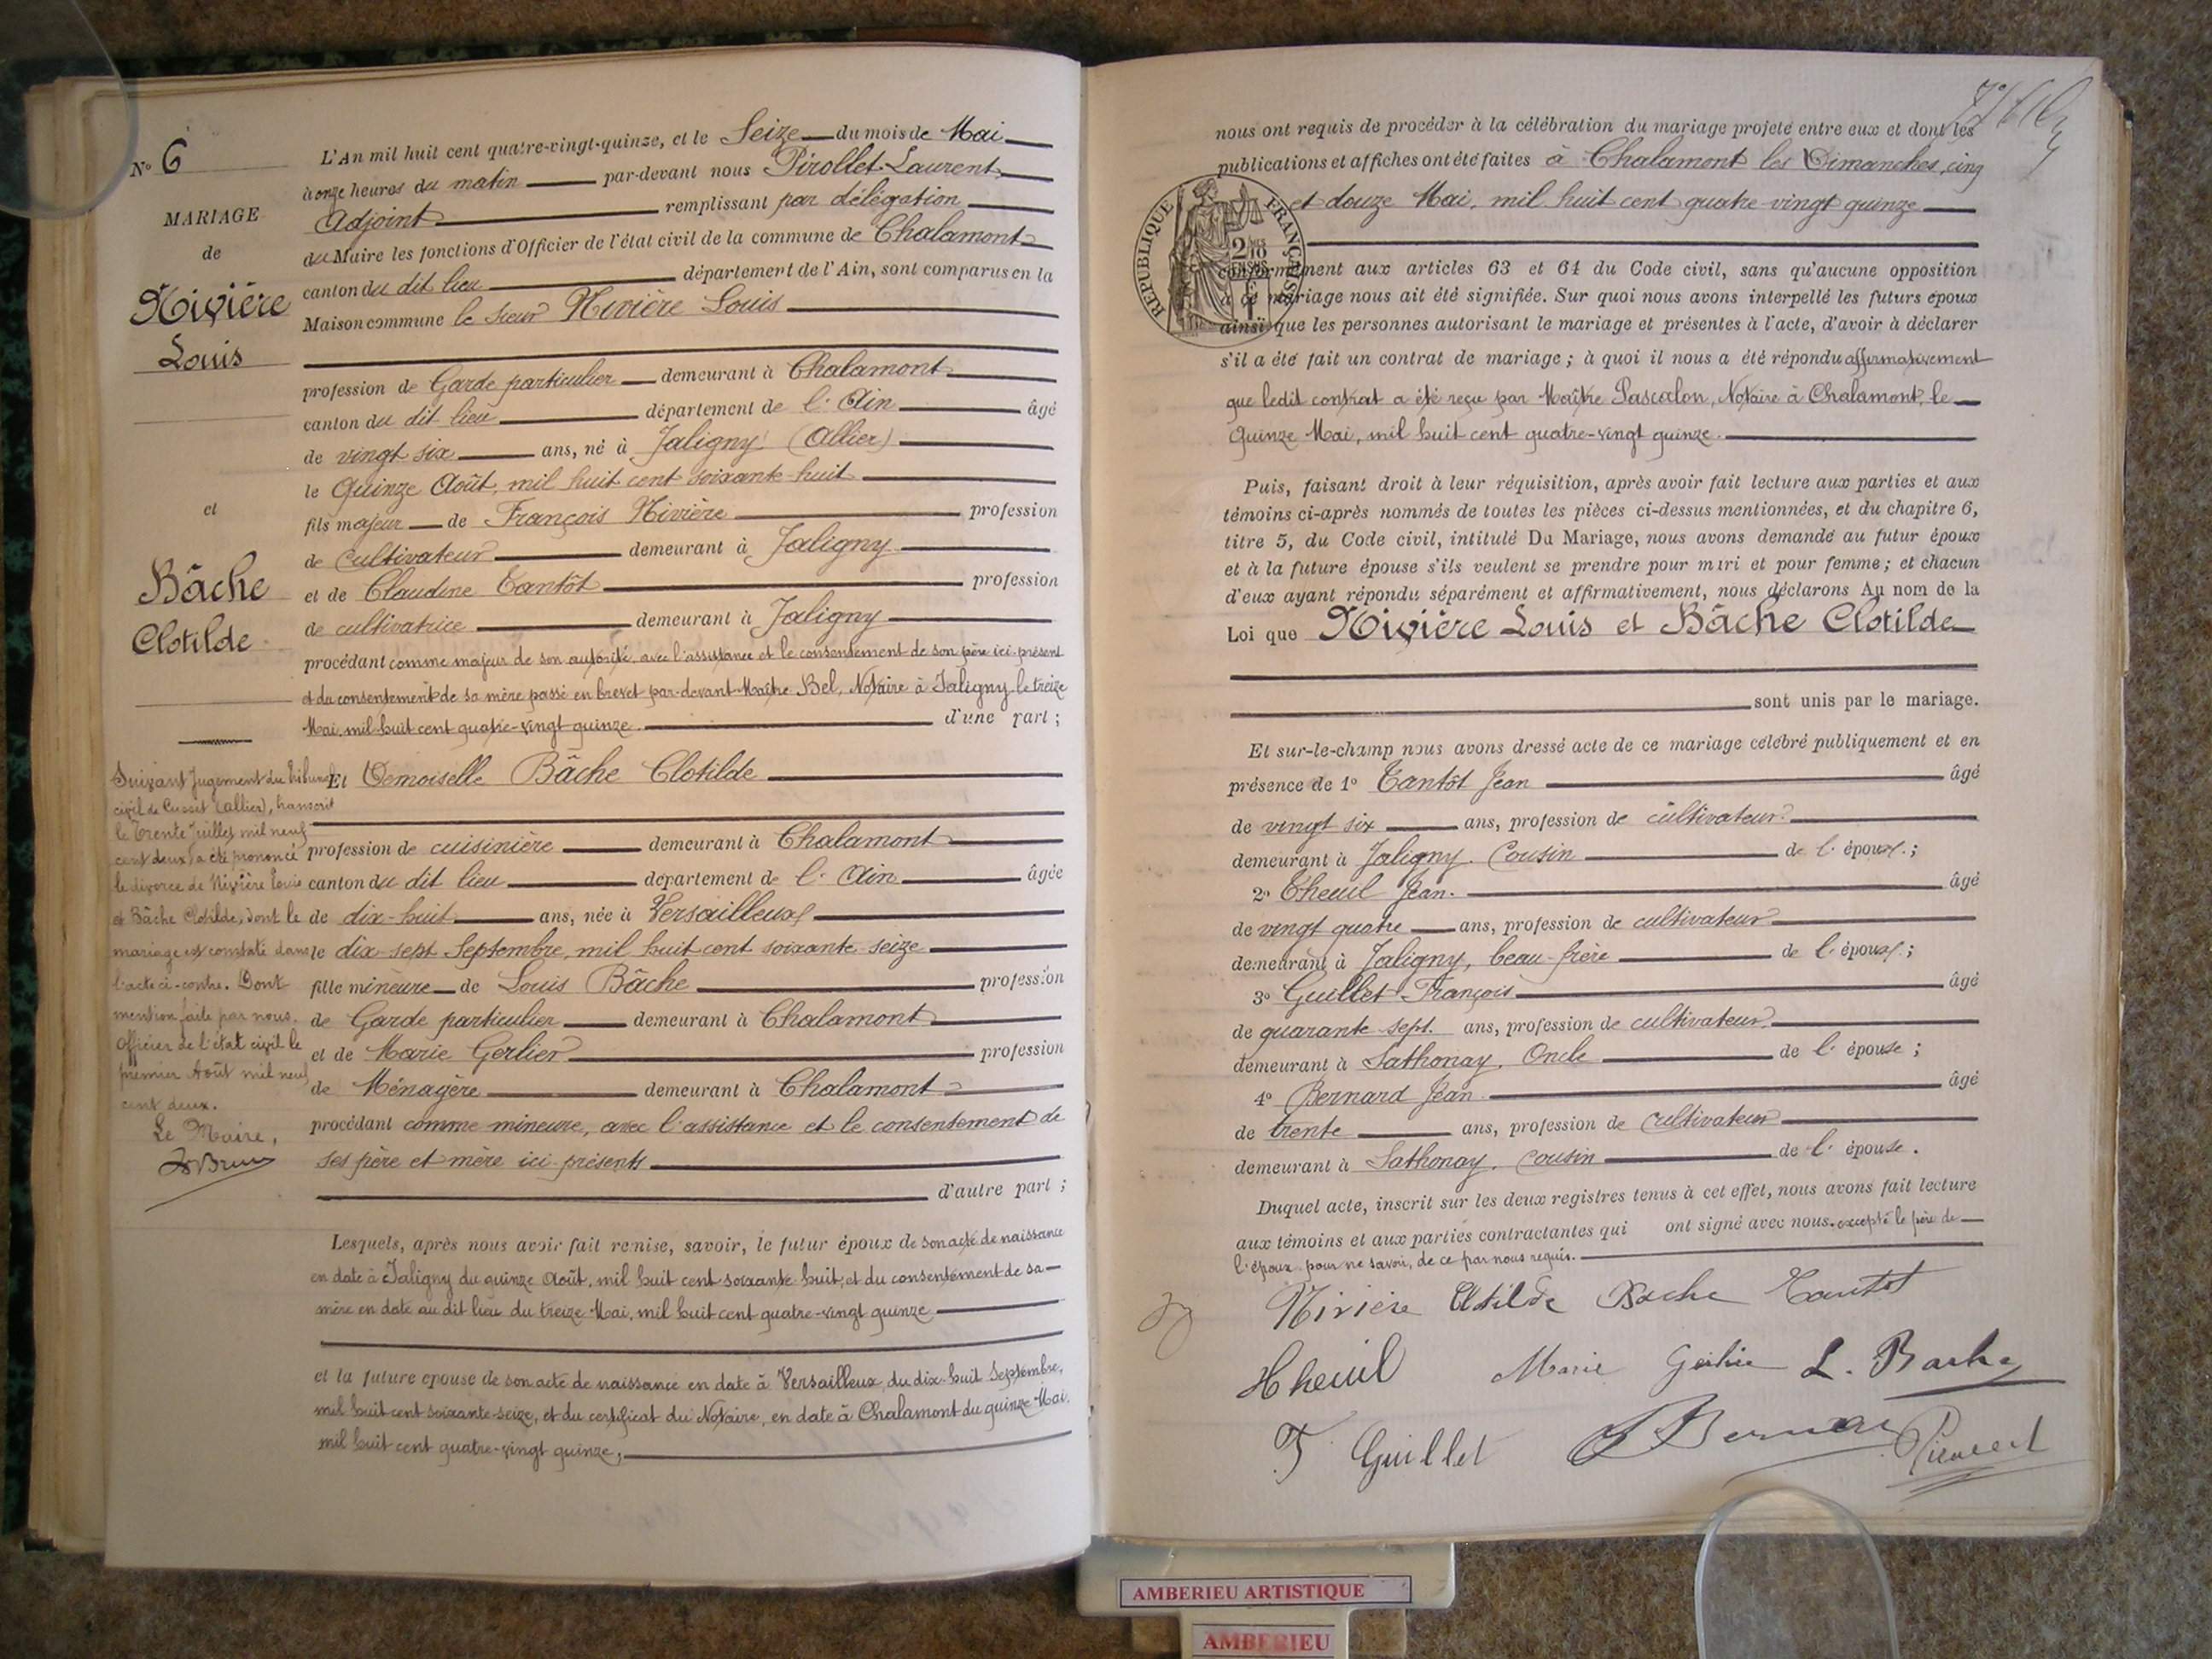 N° 6
MARIAGE
de
Nivière
Louis
et
Bâche
Clotilde
L'An mil huit cent quatre-vingt-quinze, et le Seize du mois de Mai
à onze heures du matin par-devant nous Pirollet Laurent,
Adjoint remplissant par délégation
du Maire les fonctions d'Officier de l'état civil de la commune de Chalamont
canton du dit lieu département de l'Ain, sont comparus en la
Maison commune le sieur Nivière Louis
profession de Garde particulier demeurant à Chalamont
canton du dit lieu département de l'Ain âgé
de vingt six ans, né à Jaligny (Allier)
le Quinze Août, mil huit cent soixante huit
fils majeur de François Nivière profession
de Cultivateur demeurant à Jaligny
et de Claudine Tantôt profession
de cultivatrice demeurant à Jaligny
procédant comme majeur de son autorité, avec l'assistance et le consentement de son père ici présent
et du consentement de sa mère passé en brevet par-devant Maître Bel, Notaire à Jaligny le treize
Mai, mil huit cent quatre-vingt quinze. d'une part ;
Et Demoiselle Bâche Clotilde
profession de cuisinière demeurant à Chalamont
canton du dit lieu département de l'Ain âgée
de dix-huit ans, née à Versailleux
le dix-sept Septembre, mil huit cent soixante seize
fille mineure de Louis Bâche profession
de Garde particulier demeurant à Chalamont
et de Marie Gerlier profession
de Ménagère demeurant à Chalamont
procédant comme mineure, avec l'assistance et le consentement de
ses père et mère ici présents
d'autre part ;
Suivant Jugement du tribunal
civil de Cusset (Allier), transcrit
le trente Juillet mil neuf
cent deux, a été prononcé
le divorce de Nivière Louis
et Bâche Clotilde, dont le
mariage est constaté dans
l'acte ci-contre. Dont
mention faite par nous,
Officier de l'état civil le
premier Août mil neuf
cent deux.
Le Maire,
Lesquels, après nous avoir fait remise, savoir, le futur époux de son acte de naissance
en date à Jaligny du quinze Août, mil huit cent soixante huit, et du consentement de sa
mère en date au dit lieu du treize Mai, mil huit cent quatre-vingt quinze
et la future épouse de son acte de naissance en date à Versailleux, du dix-huit Septembre,
mil huit cent soixante-seize, et du certificat du Notaire, en date à Chalamont du quinze Mai,
mil huit cent quatre-vingt quinze,
nous ont requis de procéder à la célébration du mariage projeté entre eux et dont les
publications et affiches ont été faites à Chalamont les Dimanches, cinq
et douze Mai, mil huit cent quatre-vingt quinze
RÉPUBLIQUE FRANÇAISE
conformément aux articles 63 et 64 du Code civil, sans qu'aucune opposition
à ce mariage nous ait été signifiée. Sur quoi nous avons interpellé les futurs époux
ainsi que les personnes autorisant le mariage et présentes à l'acte, d'avoir à déclarer
s'il a été fait un contrat de mariage ; à quoi il nous a été répondu affirmativement
que ledit contrat a été reçu par Maître Pascalon, Notaire à Chalamont, le
Quinze Mai, mil huit cent quatre-vingt quinze.
Puis, faisant droit à leur réquisition, après avoir fait lecture aux parties et aux
témoins ci-après nommés de toutes les pièces ci-dessus mentionnées, et du chapitre 6,
titre 5, du Code civil, intitulé Du Mariage, nous avons demandé au futur époux
et à la future épouse s'ils veulent se prendre pour mari et pour femme ; et chacun
d'eux ayant répondu séparément et affirmativement, nous déclarons Au nom de la
Loi que Nivière Louis et Bâche Clotilde
sont unis par le mariage.
Et sur-le-champ nous avons dressé acte de ce mariage célébré publiquement et en
présence de 1° Tantôt Jean âgé
de vingt six ans, profession de cultivateur
demeurant à Jaligny. Cousin de l'époux ;
2° Theuil Jean. âgé
de vingt quatre ans, profession de cultivateur
demeurant à Jaligny, beau-frère de l'époux ;
3° Guillet François âgé
de quarante sept. ans, profession de cultivateur
demeurant à Sathonay, Oncle de l'épouse ;
4° Bernard Jean âgé
de trente ans, profession de Cultivateur
demeurant à Sathonay, cousin de l'épouse.
Duquel acte, inscrit sur les deux registres tenus à cet effet, nous avons fait lecture
aux témoins et aux parties contractantes qui ont signé avec nous, excepté le père de
l'époux pour ne savoir, de ce par nous requis.
Nivière Clotilde Bache Tantôt
Theuil Marie Gerlier L. Bache
F Guillet J Bernard
AMBERIEU ARTISTIQUE
AMBERIEU